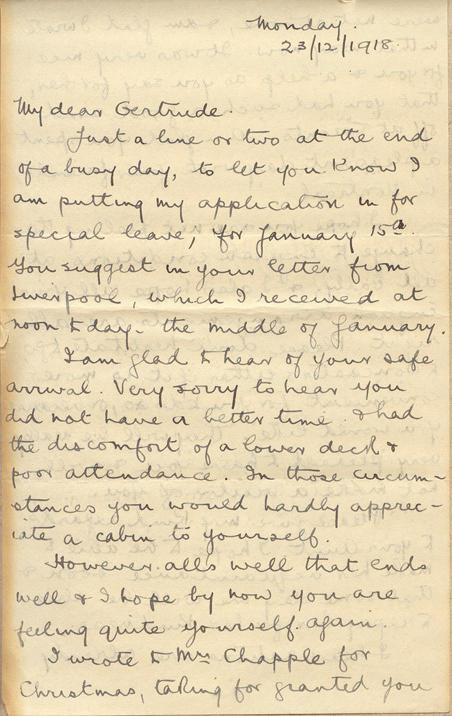 Monday.
23/12/1918.
My dear Gertrude.
Just a line or two at the end
of a busy day, to let you know I
am putting my application in for
special leave, for January 15th.
You suggest in your letter from
Liverpool, which I received at
noon to day. the middle of January.
I am glad to hear of your safe
arrival. Very sorry to hear you
did not have a better time. & had
the discomfort of a lower deck &
poor attendance. In those circum-
stances you would hardly apprec-
iate a cabin to yourself.
However. alls well that ends
well & I hope by now you are
feeling quite yourself again.
I wrote to Mrs Chapple for
Christmas, taking for granted you